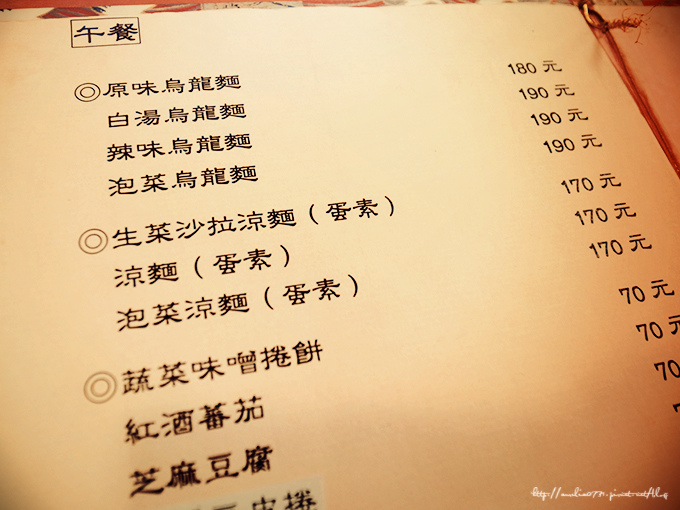 午餐
◎原味烏龍麵 180元
白湯烏龍麵 190元
辣味烏龍麵 190元
泡菜烏龍麵 190元
◎生菜沙拉涼麵（蛋素） 170元
涼麵（蛋素） 170元
泡菜涼麵（蛋素） 170元
◎蔬菜味噌捲餅 70元
紅酒蕃茄 70元
芝麻豆腐 70
皮捲